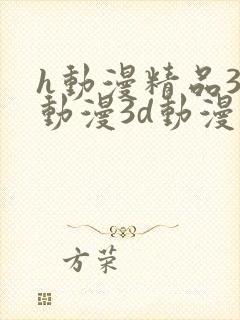 h動漫精品3
動漫3d動漫
方荣